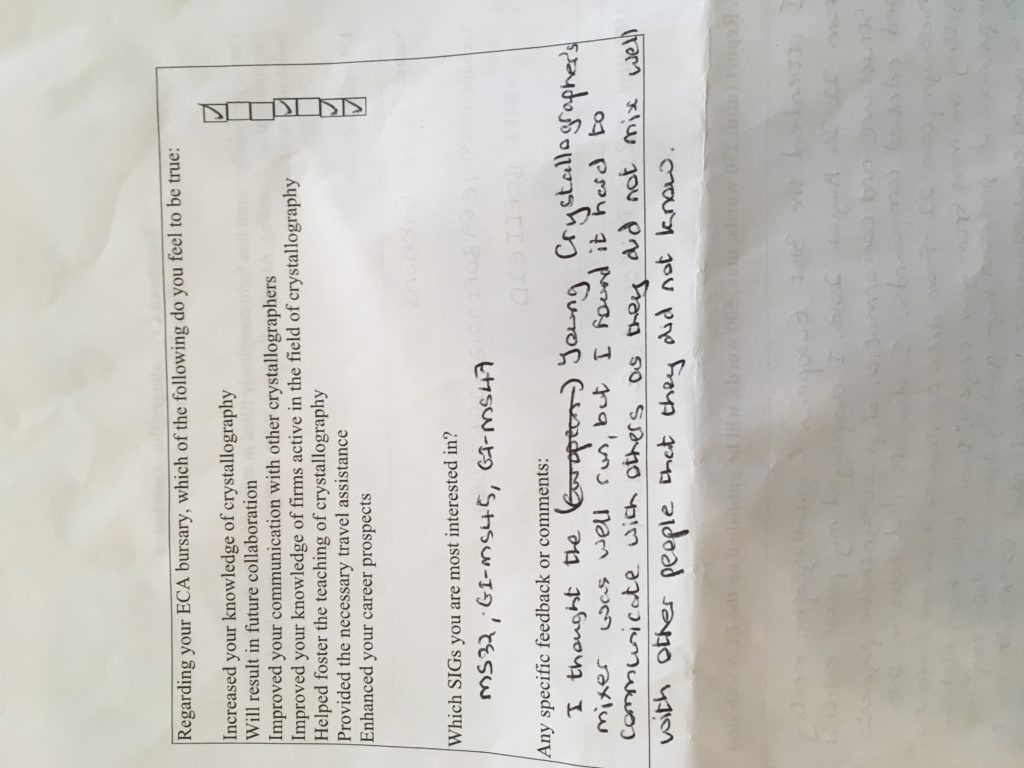 Regarding your ECA bursary, which of the following do you feel to be true:
Increased your knowledge of crystallography
Will result in future collaboration
Improved your communication with other crystallographers
Improved your knowledge of firms active in the field of crystallography
Helped foster the teaching of crystallography
Provided the necessary travel assistance
Enhanced your career prospects
Which SIGs you are most interested in?
MS32, GI-MS45, GI-MS47
Any specific feedback or comments:
I thought the (European) Young Crystallographer's
mixer was well run, but I found it hard to
communicate with others as they did not mix well
with other people that they did not know.